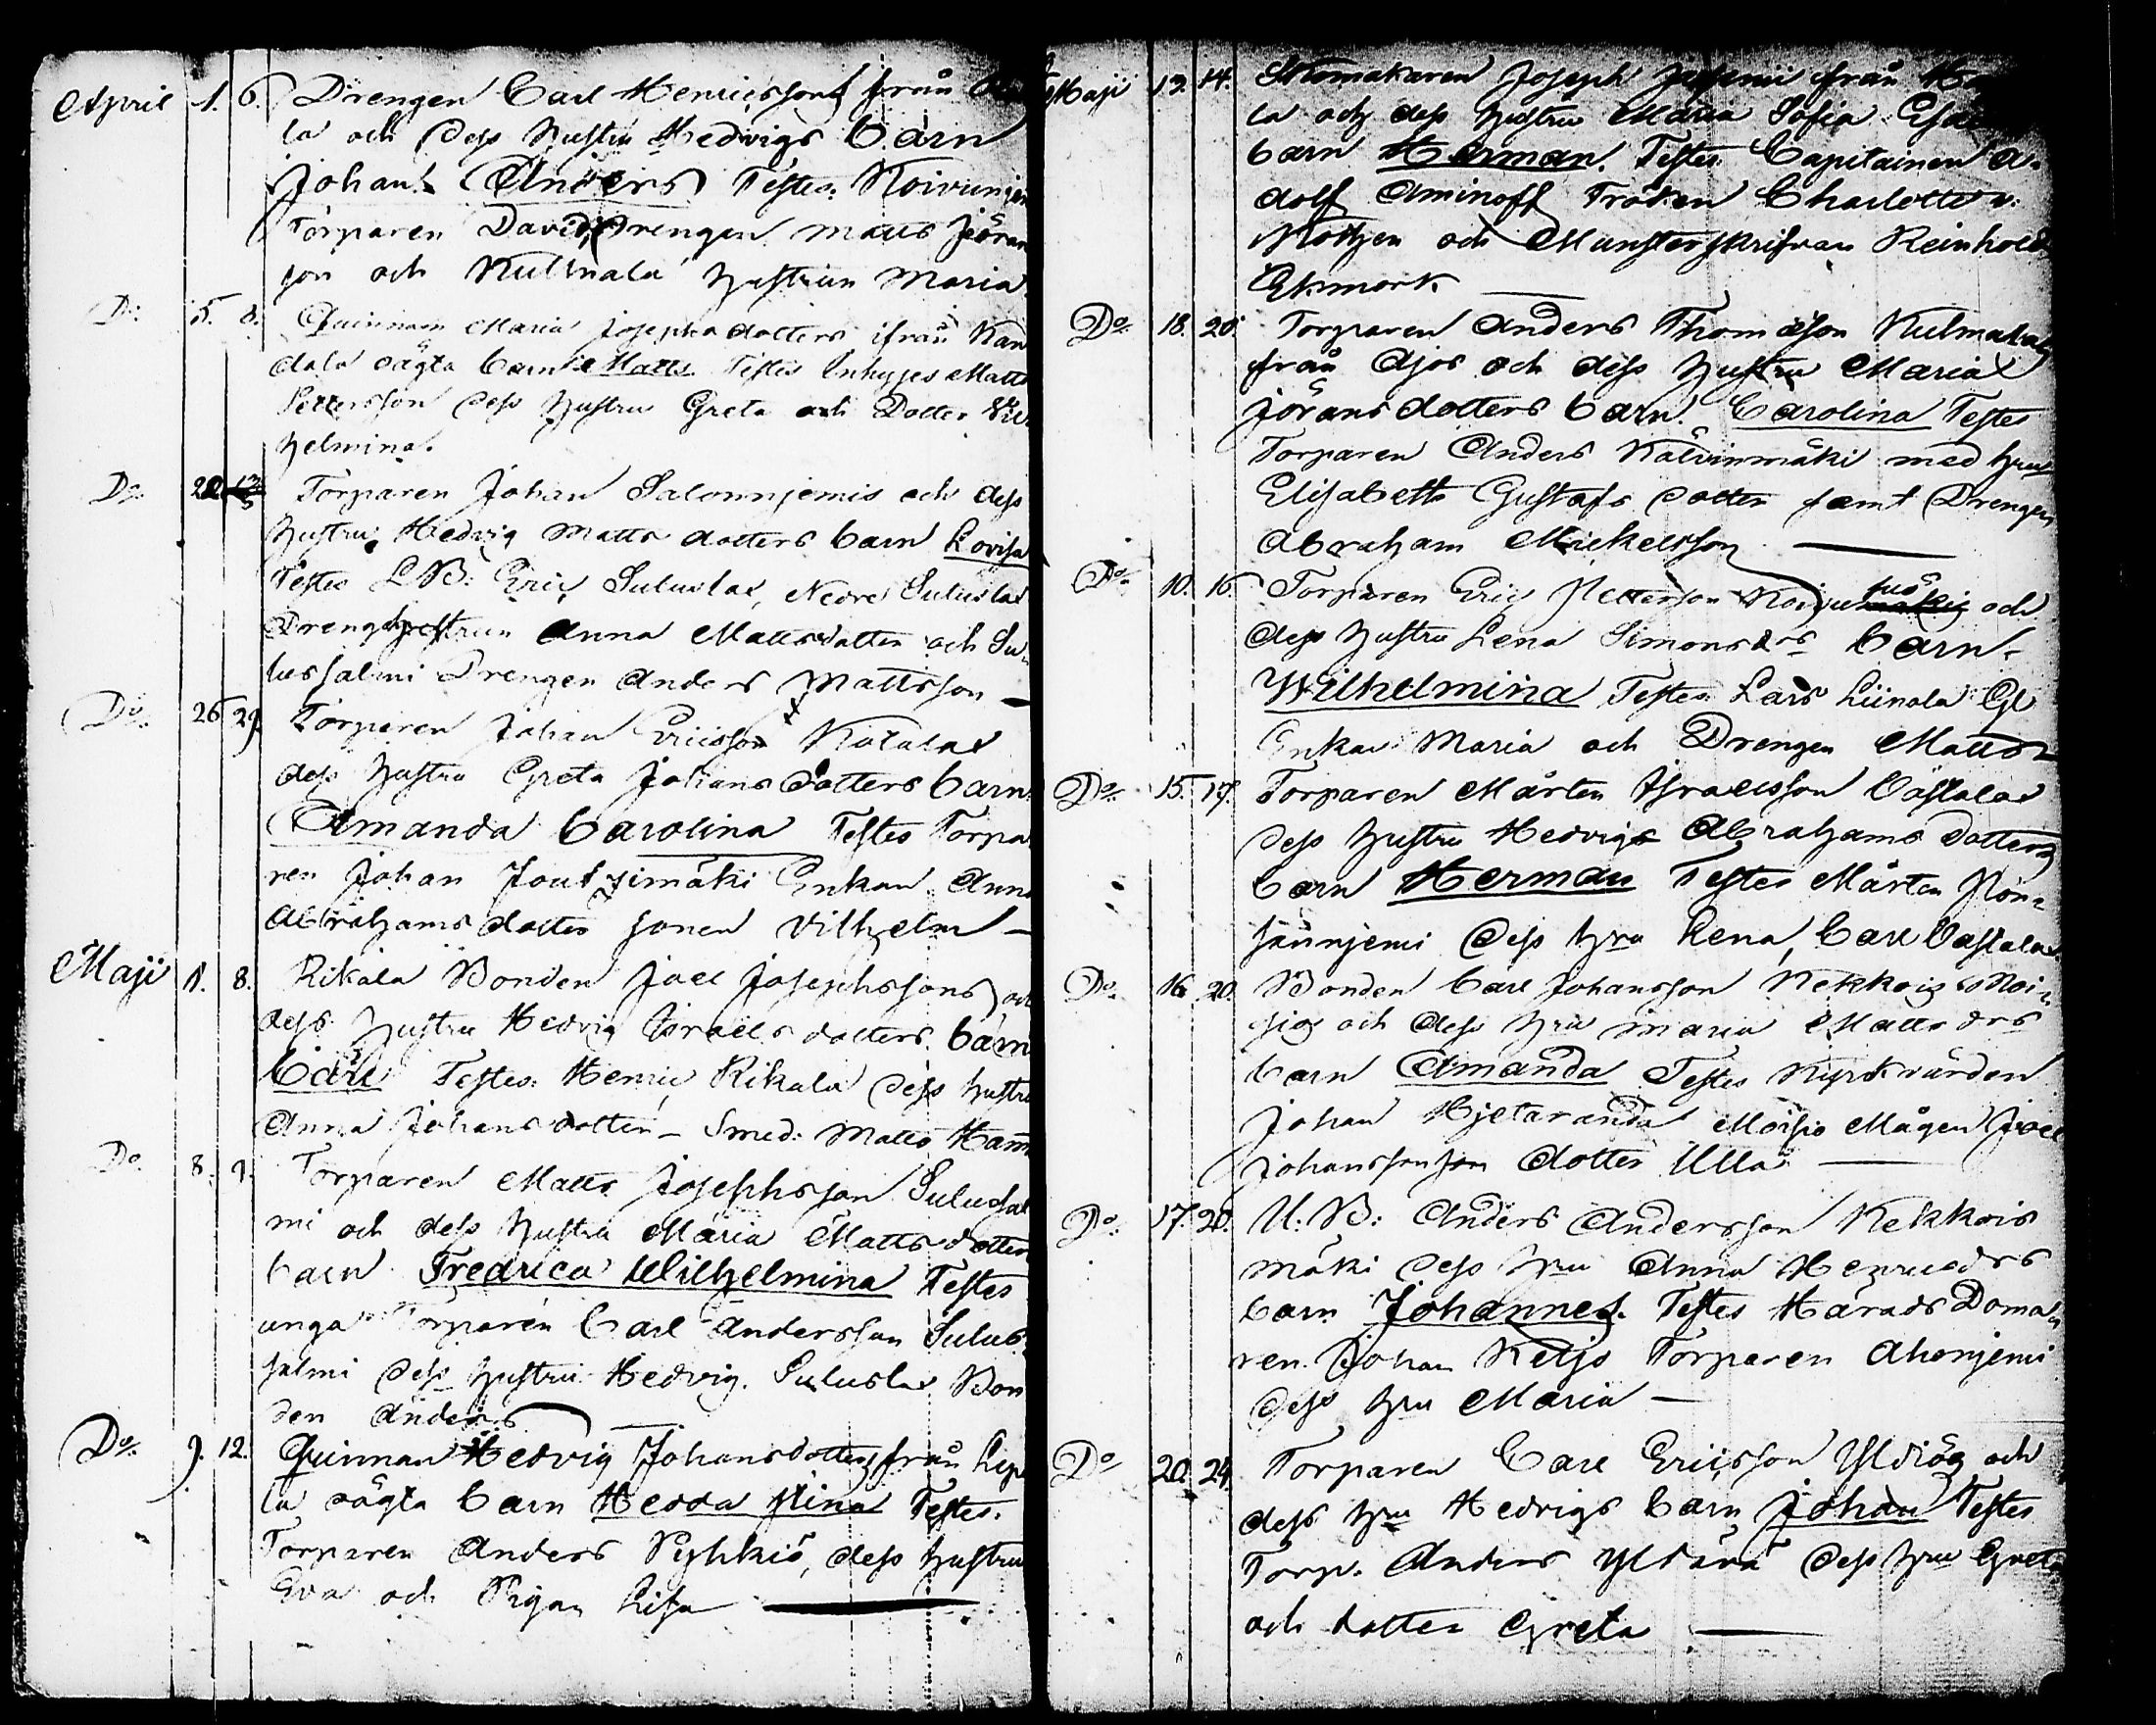 April 1. 6. Drengen Carl Henricssons från
la och dess hustru Hedvigs barn
Johan Anders Testes: Koivunjemi
Torparen David, Drengen Matts Jöran
son och Kulmala hustrun Maria
Do. 5. 8. Quinnan Maria Josephsdotters ifrån Kan
dala oägta barn Matts Testes Inhyses Matts
Pettersson dess hustru Greta och Dotter Vil
helmina.
Do. 22. Torparen Johan Salonnjemis och dess
hustru Hedvig Matts dotters barn Lovisa
Testes L.B: Eric Suluslax, Nedre Suluslax
Dreng hustrun Anna Mattsdotter och Su-
lussalmi Drengen Anders Mattsson —
Do. 26 29. Torparen Johan Ericsson Katalax
dess hustru Greta Johansdotters barn
Amanda Carolina Testes Torpa
ren Johan Joutsimäki Enkan Anna
Abrahamsdotter sonen Vilhelm —
Maji 1. 8. Rikala Bonden Joel Josephssons och
dess hustru Hedvig Israelsdotters barn
Carl Testes: Henric Rikala dess hustru
Anna Johansdotter – Smed: Matts Ham
Do. 8. 9. Torparen Matts Josephsson Sulussal
mi och dess hustru Maria Mattsdotters
barn Fredrica Wilhelmina Testes
unga Torparen Carl Andersson Sulus
salmi dess hustru Hedvig. Suluslax Bon
den Anders
Do. 9. 12. Quinnan Hedvig Johansdotters från Lepi
la oägta barn Hedda Stina Testes.
Torparen Anders Pyhkiö, dess hustru
Eva och Pigan Lisa —
Maji 13. 14. Skomakaren Joseph från
la och dess hustru Maria Sofia
barn Herman. Testes Capitainen A-
dolf Aminoff Fröken Charlotte v:
Kothen och Munsterskrifvaren Reinhold
Ekmark —
Do. 18. 20. Torparen Anders Thomasson Kulmala
från Ajos och dess hustru Maria
Jöransdotters barn. Carolina Testes
Torparen Anders Kalvinmäki med hru
Elisabeth Gustafs dotter samt Drengen
Abraham Mickelsson —
Do. 10. 16. Torparen Eric Pettersson och
dess hustru Lena Simonsdrs barn.
Wilhelmina Testes: Lars Liinala Gl
Enkan Maria och Drengen Matts
Do. 15. 17. Torparen Mårten Israelsson Västalax
dess hustru Hedvigs Abrahams dotters
barn Herman Testes Mårten Pön-
sännjemi dess hru Lena, Carl Vastalax
Do. 16 20. Bonden Carl Johansson Kekkois Moi-
sios och dess hru Maria Matts drs
barn Amanda Testes Kyrkvärden
Johan Hjetaranda Moisio Mågen Joel
Johansson dotter Ulla —
Do. 17. 20. U: B: Anders Andersson Kekkois
mäki dess hru Anna Henricsdrs
barn Johannes. Testes Härads Doma-
ren Johan Ketjo Torparen Ahonjemi
dess hru Maria —
Do 20. 24. Torparen Carl Ericsson och
dess hru Hedvigs barn Johan Testes
Torp. Anders dess hru Greta
och dotter Greta —